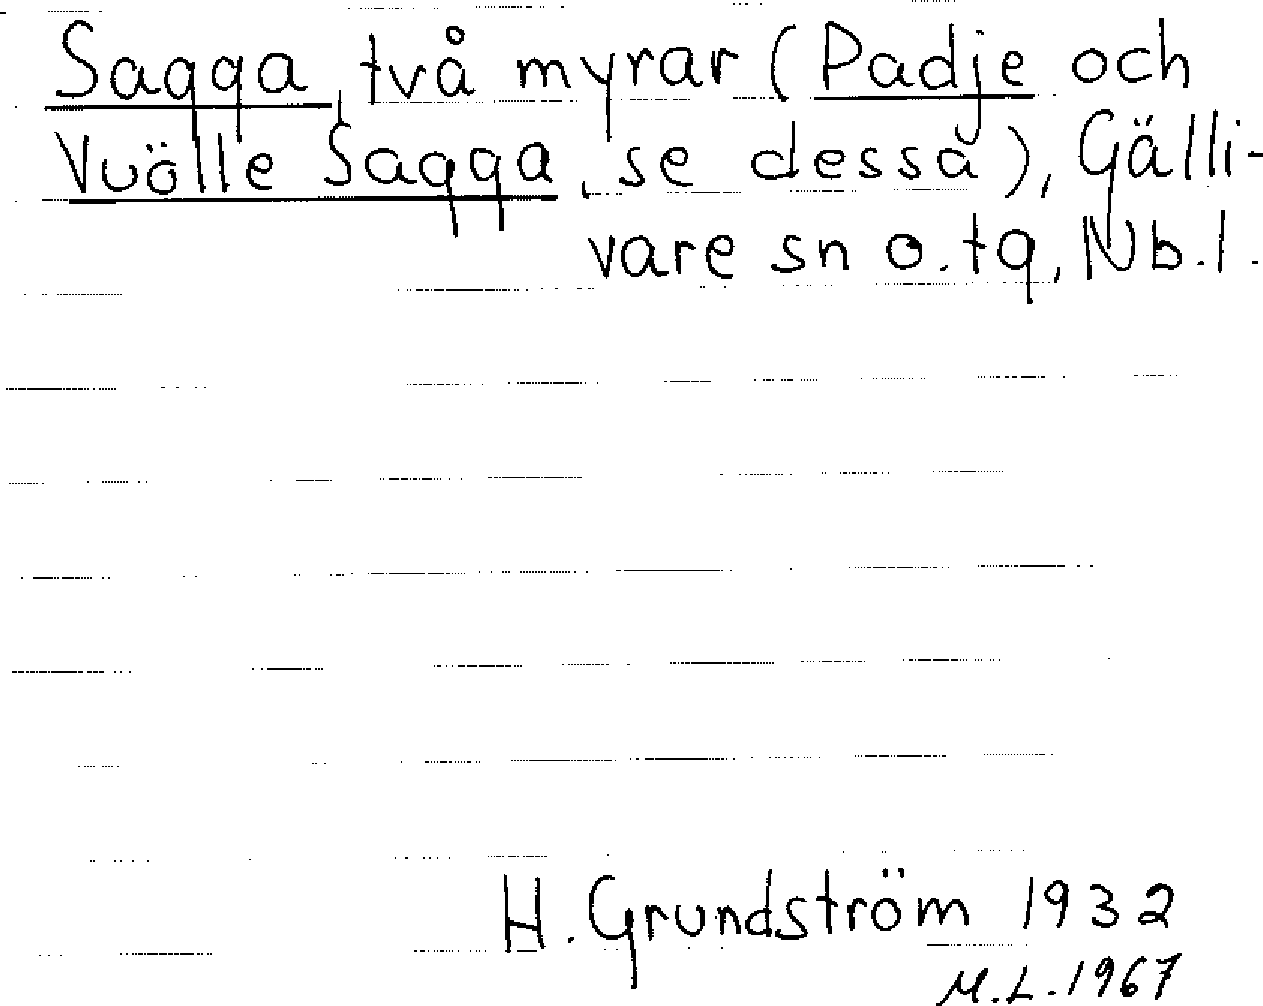 Sagga, två myrar (Padje och
Vuölle Sagga, se dessa), Gälli-
vare sn o. tg, Nb. l.
H. Grundström 1932
M.L. 1967